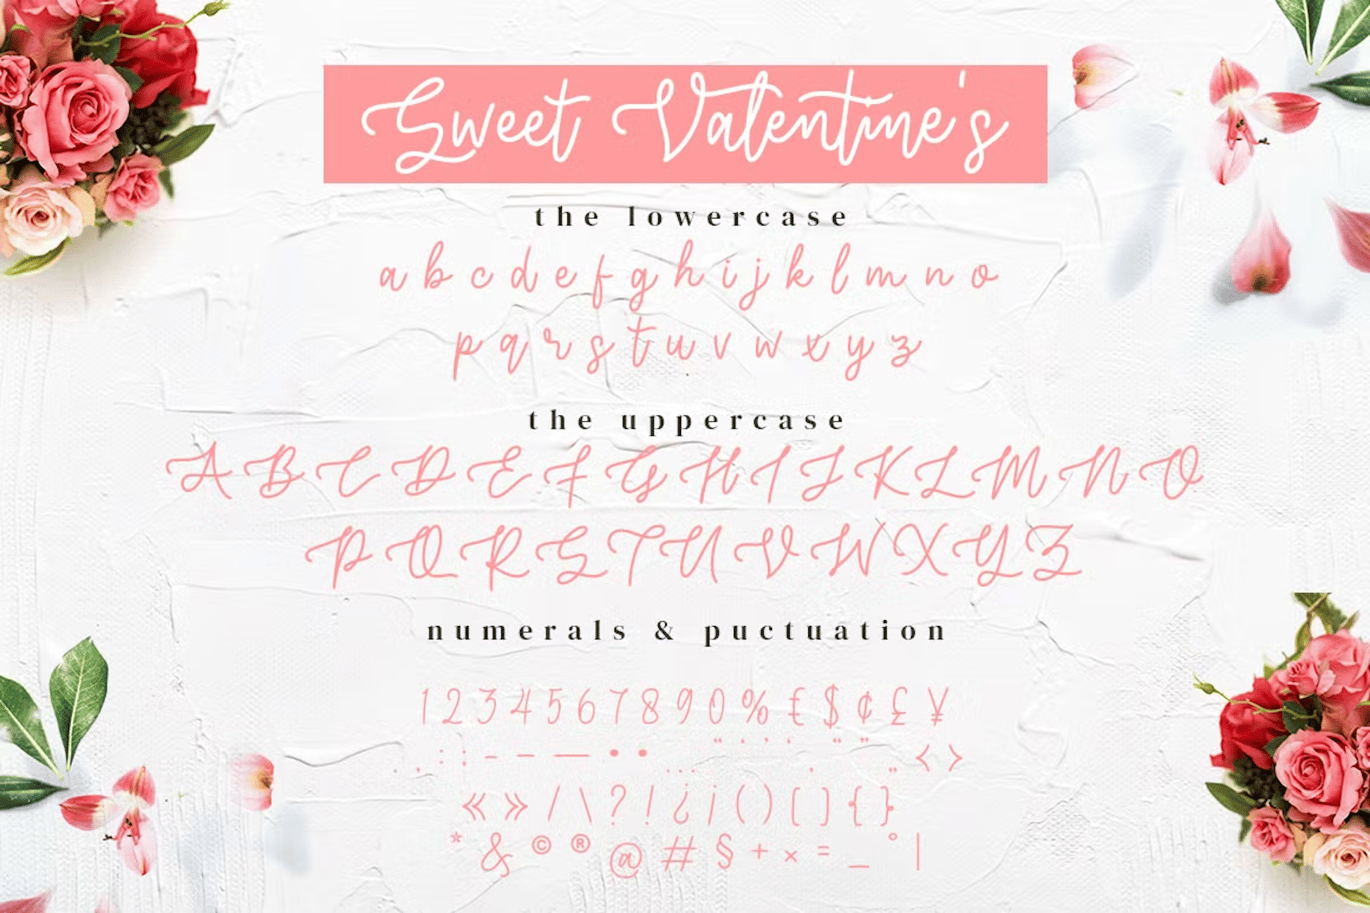 Sweet Valentine's
the lowercase
a b c d e f g h i j k l m n o
p q r s t u v w x y z
the uppercase
A B C D E F G H I J K L M N O
P Q R S T U V W X Y Z
numerals & puctuation
1 2 3 4 5 6 7 8 9 0 % € $ ¢ £ ¥
. , : ; - – — • • … " ' ' ' " " , „ < >
« » / \ ? ! ¿ ¡ ( ) [ ] { }
* & © ® @ # § + × = _ ° |